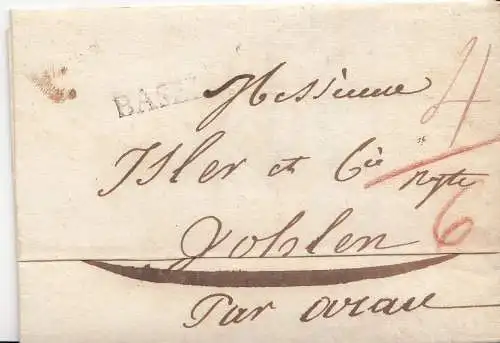 BASEL
Messieurs
4
Isler et Cie
Wohlen
6
Par arau